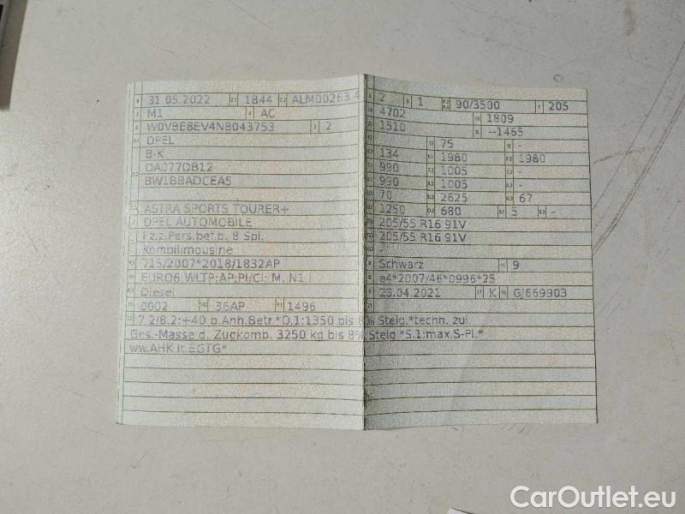 31.05.2022 1844 ALM00263.4
M1 AC
W0VBE8EV4N8043753 2
OPEL
B-K
DA077DB12
BW1BBADCEA5
ASTRA SPORTS TOURER+
OPEL AUTOMOBILE
Fz.z.Pers.bef.b. 8 Spl.
Kombilimousine
715/2007*2018/1832AP
EURO6 WLTP;AP;PI/CI; M, N1 I
Diesel
0002 36AP 1496
7.2/8.2:+40 b.Anh.Betr.*O.1:1350 bis 8% Steig.*techn. zul
Ges.-Masse d. Zugkomb. 3250 kg bis 8% Steig *S.1:max.S-Pl.*
ww.AHK lt.EGTG*
2 1 90/3500 205
4702 1809
1510 --1465
75 -
134 1980 1980
990 1005 -
990 1005 -
70 2625 67
1250 680 5 -
205/55 R16 91V
205/55 R16 91V
-
Schwarz 9
e4*2007/46*0996*25
23.04.2021 K GJ669903
CarOutlet.eu